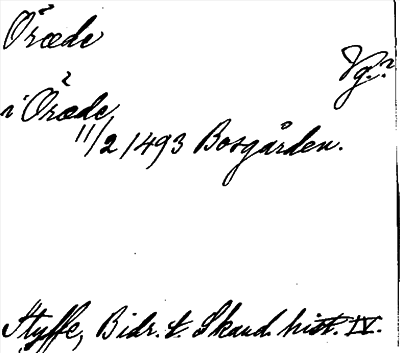 Öræde
Vg.?
i Öræde
11/2 1493 Bosgården.
Styffe, Bidr. t. Skand. hist. IV.